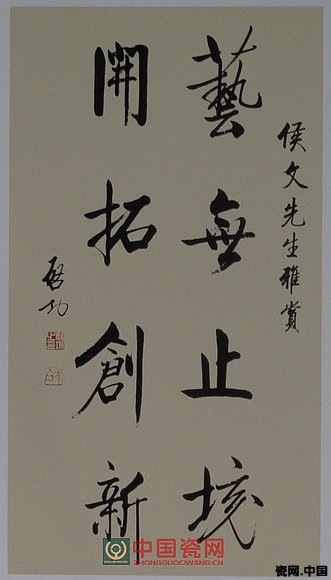 侯文先生雅賞
藝無止境
開拓創新
啟功
中国瓷网
ZHONGGUOCIWANG.COM
瓷网.中国